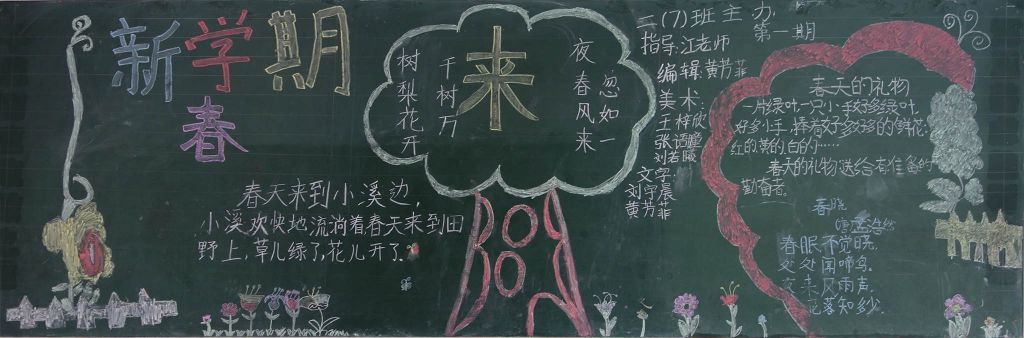 新学期
春
来
忽如一
夜春风来
千树万
树梨花开
春天来到小溪边,
小溪欢快地流淌着春天来到田
野上,草儿绿了,花儿开了。
二(7)班主办
第一期
指导:江老师
编辑黄芳菲
美术:
王梓欣
文字
刘宇晨
黄芳菲
春天的礼物
好多小手,捧着好多
红的黄的白的……
春天的礼物送给有准备的
勤奋者
春晓
唐 孟浩然
春眠不觉晓,
处处闻啼鸟。
夜来风雨声,
花落知多少。